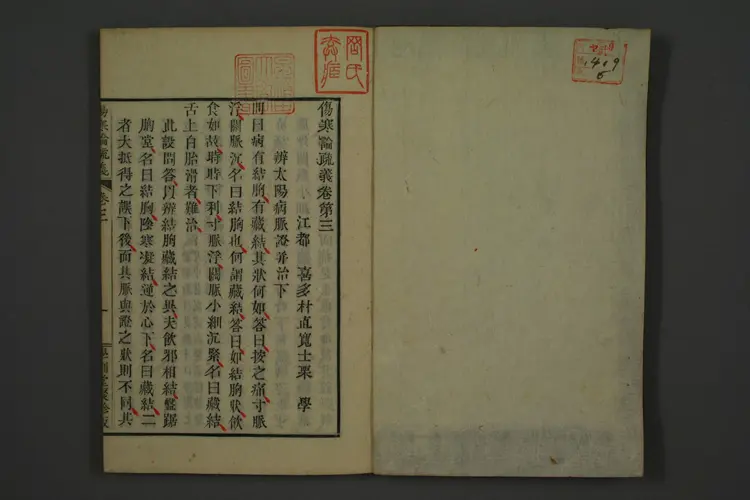 傷寒論疏義卷第三
江都 喜多村直寬士栗 學
辨太陽病脈證并治下
問曰病有結胸有藏結其狀何如答曰按之痛寸脈
浮關脈沉名曰結胸也何謂藏結答曰如結胸狀飲
食如故時時下利寸脈浮關脈小細沉緊名曰藏結
舌上白胎滑者難治
此設問答以辨結胸藏結之異夫飲邪相結盤踞
胸堂名曰結胸陰寒凝結逆於心下名曰藏結二
者大抵得之誤下後而其脈與證之狀則不同其
傷寒論疏義 卷三 一